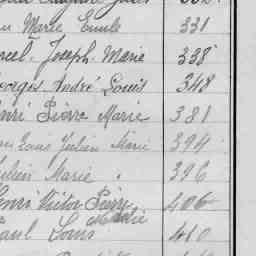 Marie Emile 331
Joseph Marie 338
Georges André Louis 348
Henri Pierre Marie 381
Louis Julien Marie 394
Julien Marie 396
Henri Victor Pierre 406
Marie
Paul Louis 410